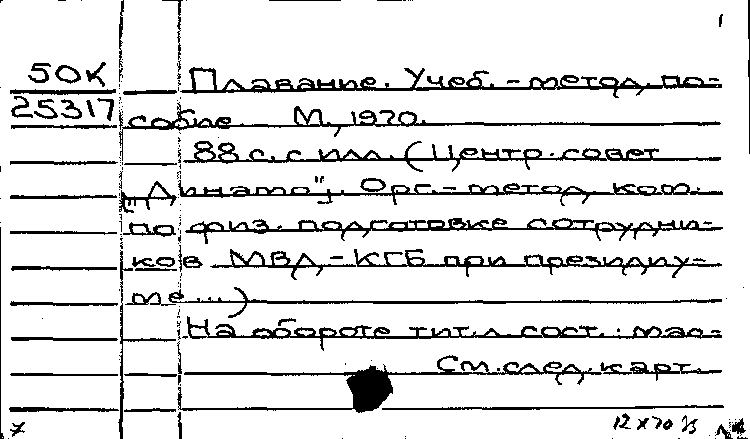 1
50К
25317
Плавание. Учеб.-метод. по-
собие. М., 1970.
88 с. с илл. (Центр. совет
["Динамо"]. Орг.-метод. ком.
по физ. подготовке сотрудни-
ков МВД-КГБ при президиу-
ме...)
На обороте тит. л. сост.: мас-
См. след. карт.
12 х 70